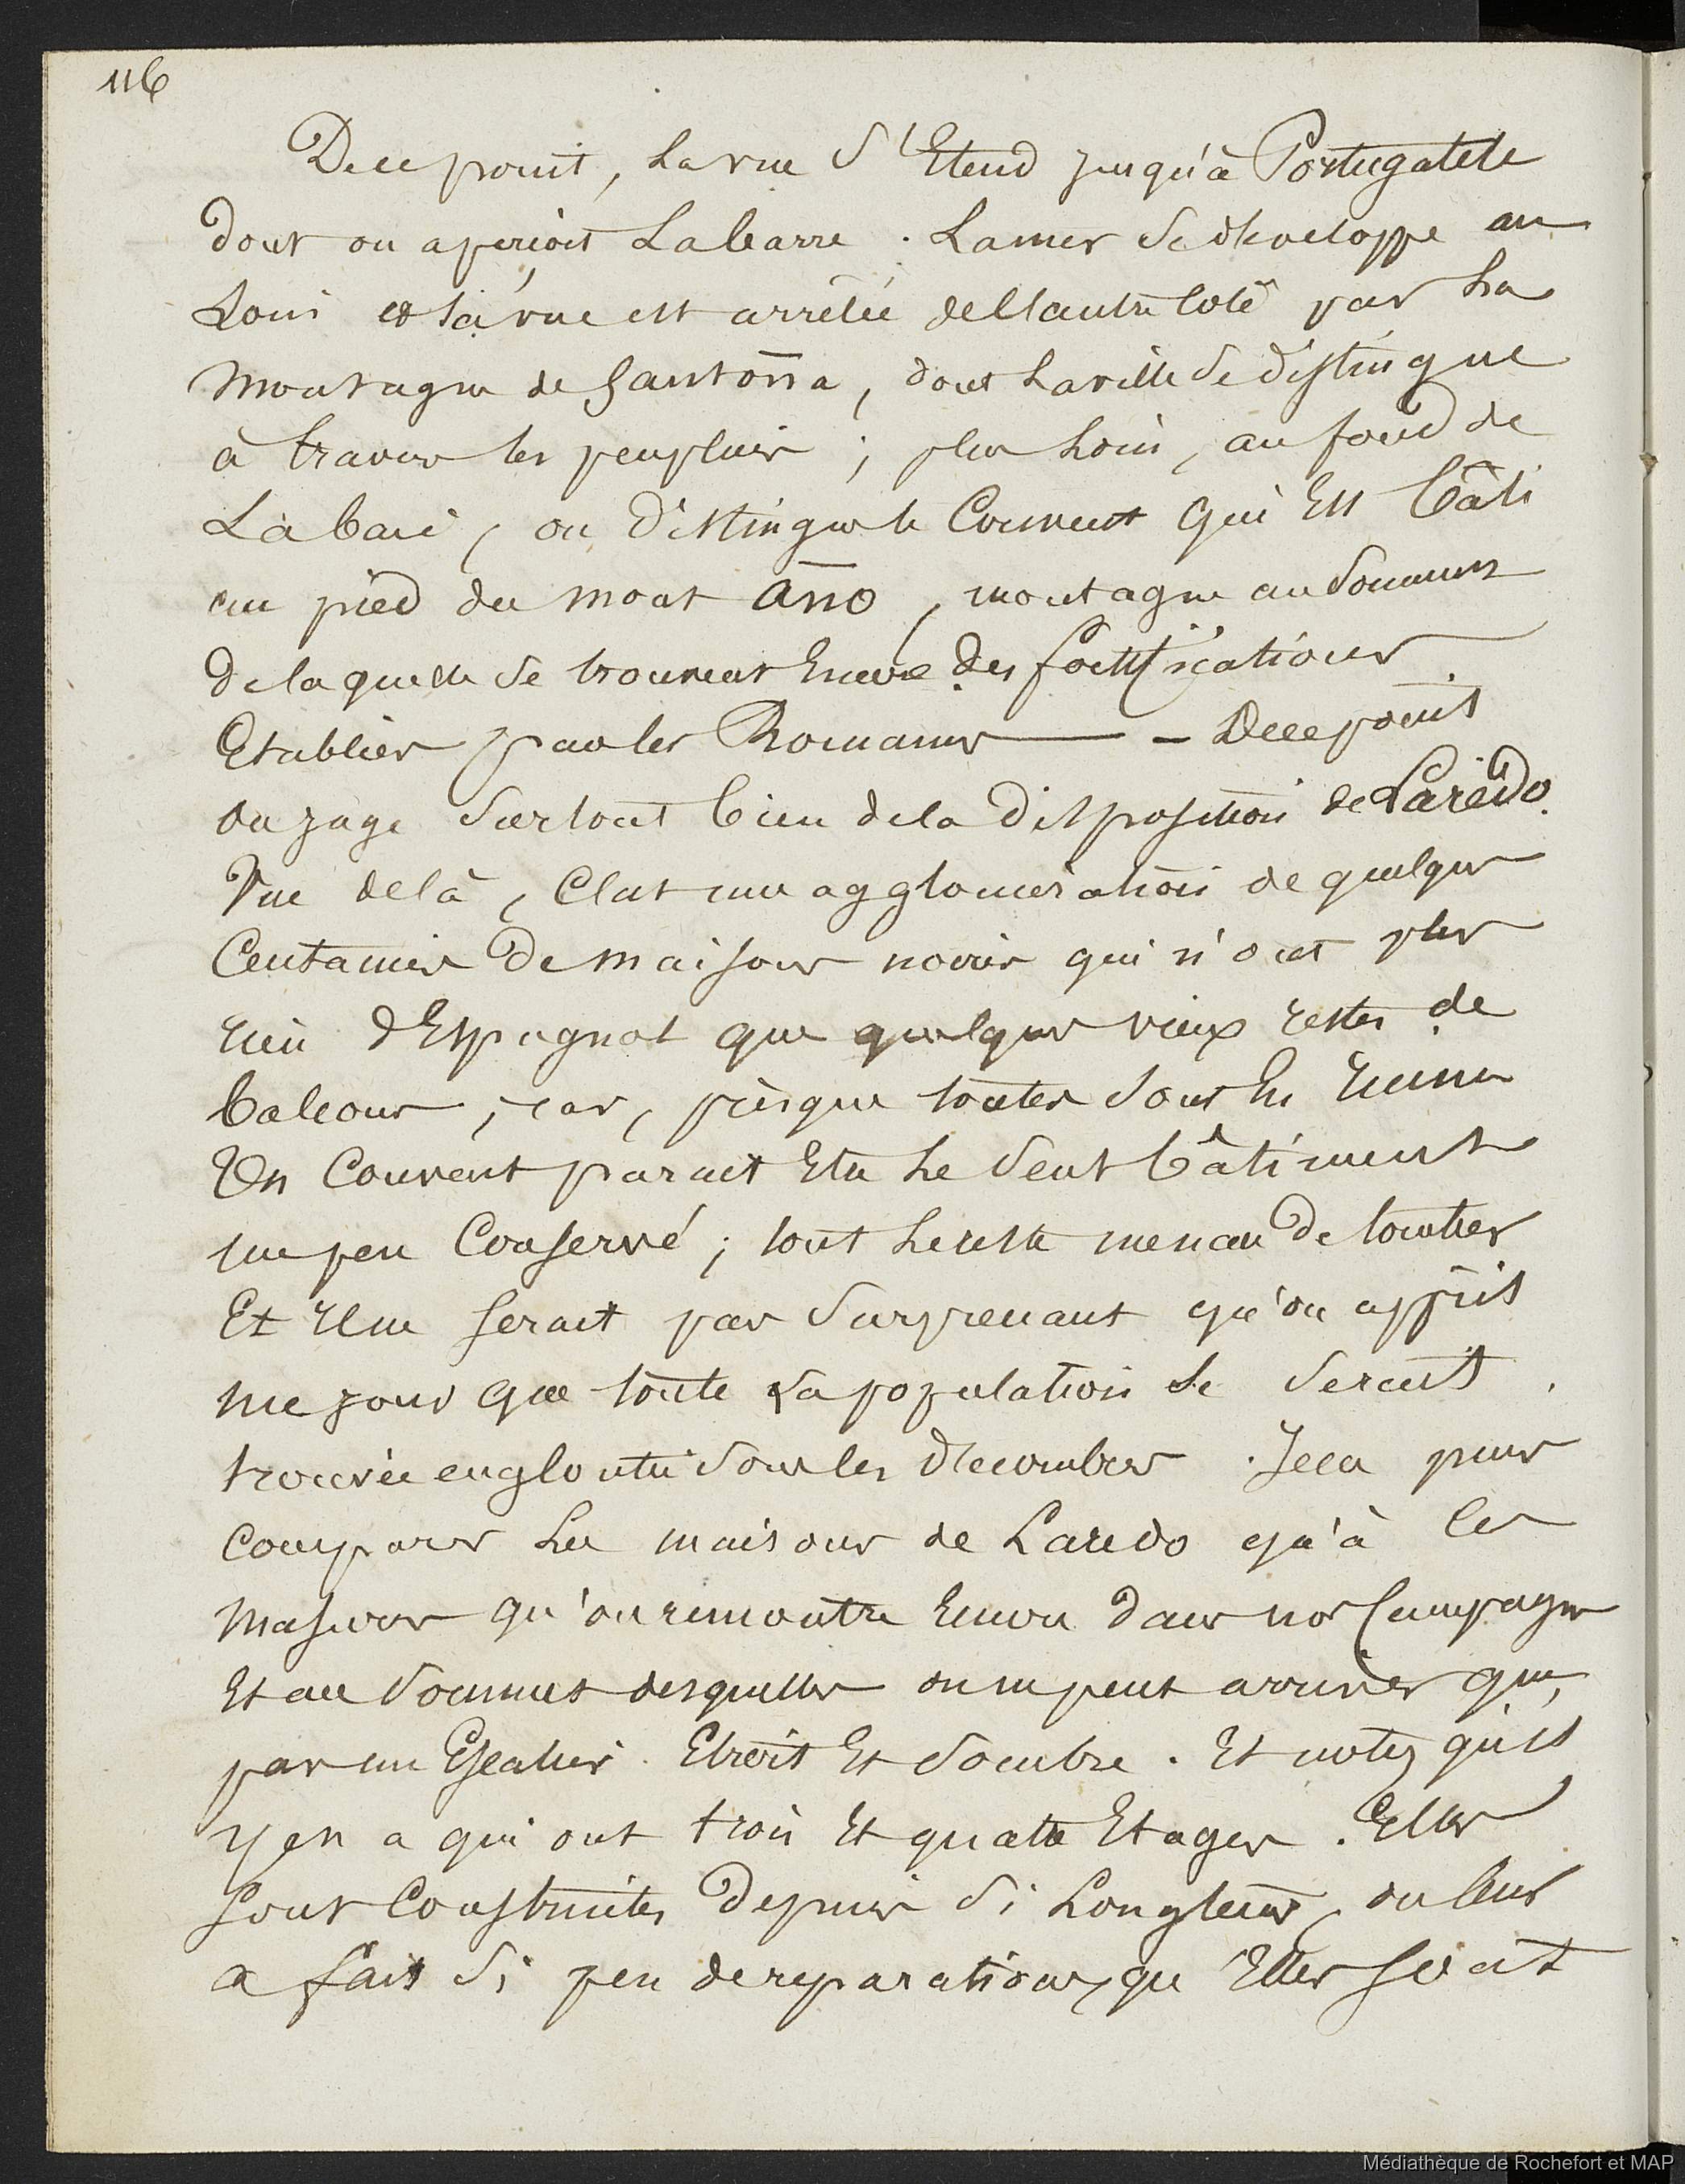 116
De ce point, la vue s'Etend jusqu'à Portugalete
dont on aperçoit la barre. La mer se développe au
Loin et la vue est arrêtée de l'autre côté par la
Montagne de Santoña, dont la ville se distingue
à travers les peupliers ; plus loin, au fond de
La baie, on distingue le Couvent qui Est bâti
au pied du mont Año, montagne au Sommet
de laquelle se trouvent Encore des fortifications
Etablies par les Romains — De ce point
on juge surtout bien de la Disposition de Larédo.
Vue de là, C'est une agglomération de quelques
Centaines De maisons noires qui n'ont plus
rien d'Espagnol que quelques vieux restes de
balcons, car, presque toutes sont En ruine
Un Couvent parait Etre le seul bâtiment
un peu Conservé ; tout le reste menace De tomber
Et Il ne serait pas surprenant qu'on apprît
un jour que toute la population se serait
trouvée engloutie sous les décombres. Je ne puis
comparer les maisons de Laredo qu'à ces
Masures qu'on rencontre Encore dans nos Campagnes
Et au sommet desquelles on ne peut arriver que
par un Escalier Etroit Et sombre. Et notez qu'il
y en a qui ont trois Et quatre Etages. Elles
sont Construites Depuis si Longtems, on leur
a fait si peu de reparations, que Elles sont
Médiathèque de Rochefort et MAP